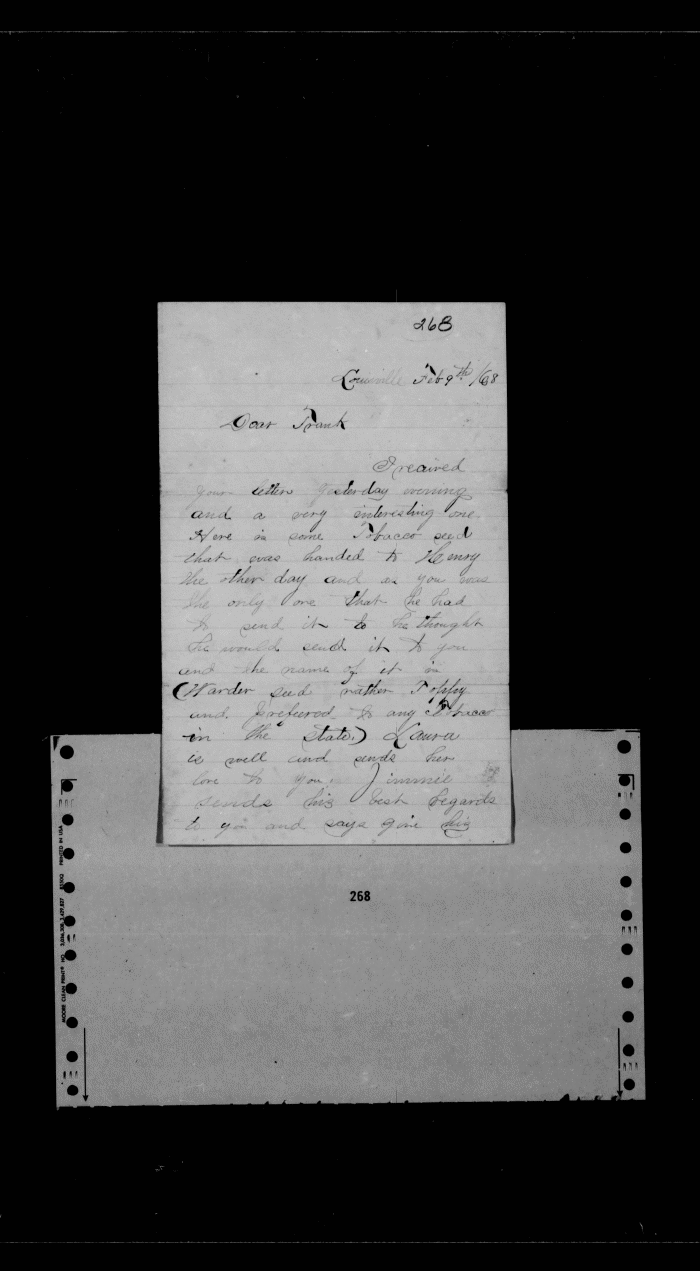 268
Louisville Feb 9th /68
Dear Frank
I recived
your letter yesterday evening
and a very interesting one
Here is some Tobacco seed
that was handed to Henry
the other day and as you was
the only one that he had
to send it to he thought
he would send it to you
and the name of it is
(Harder seed rather
and prefered to any Tobacco
in the state) Laura
is well and sends her
love to you Jimmie
sends his best regards
to you and says give his
268
MOORE CLEAN PRINT® NO. PRINTED IN USA